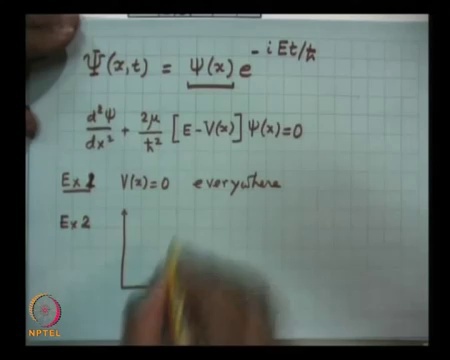 Ψ(x,t) = ψ(x) e^{-iEt/ħ}
d²ψ/dx² + 2μ/ħ² [E - V(x)] ψ(x) = 0
Ex 1 V(x) = 0 everywhere
Ex 2
NPTEL